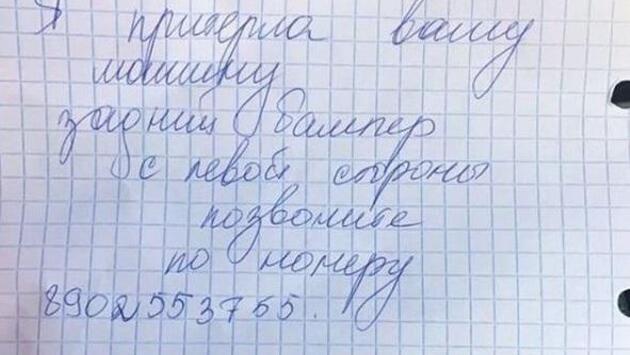 Я притерла вашу
машину
задний бампер
с левой стороны
позвоните
по номеру
8902553755.